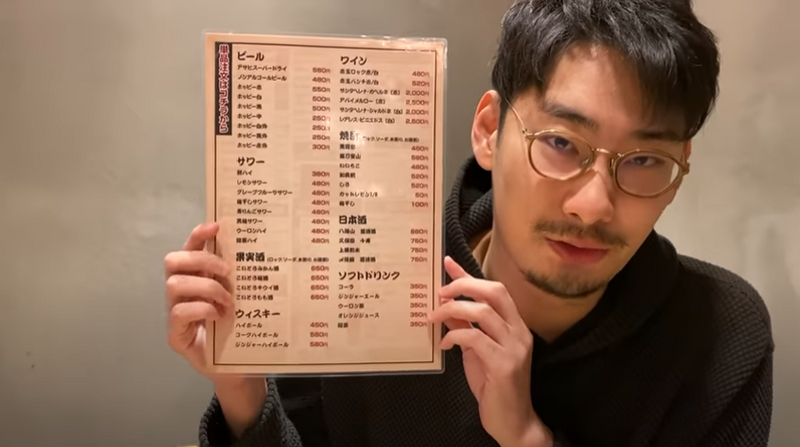 単品注文はコチラから
ビール
アサヒスーパードライ 550円
ノンアルコールビール 480円
ホッピー赤 550円
ホッピー白 500円
ホッピー黒 500円
ホッピー中 250円
ホッピー白外 250円
ホッピー黒外
ホッピー赤外 300円
サワー
酎ハイ 380円
レモンサワー 480円
グレープフルーツサワー 480円
梅干しサワー 480円
青りんごサワー 480円
男梅サワー 480円
ウーロンハイ 480円
緑茶ハイ 480円
果実酒 (ロック、ソーダ、水割り、お湯割)
こねどろみかん酒 650円
こねどろ桃酒 650円
こねどろキウイ酒 650円
こねどろもも酒 650円
ウィスキー
ハイボール 450円
コークハイボール 580円
ジンジャーハイボール 580円
ワイン
赤玉ロック赤/白 480円
赤玉パンチ赤/白 520円
サンタヘレナ・カベルネ(赤) 2,000円
アバイメルロー(赤) 2,500円
サンタヘレナ・シャルドネ(白) 2,000円
2,500円
焼酎 (ロック、ソーダ、水割り、お湯割)
黒霧島 460円
480円
520円
しそ 520円
カットレモン1/8 50円
梅干し 100円
日本酒
八海山
久保田 千寿 750円
上善如水 750円
〆張鶴 750円
ソフトドリンク
コーラ 350円
ジンジャーエール 350円
ウーロン茶 350円
オレンジジュース 350円
緑茶 350円